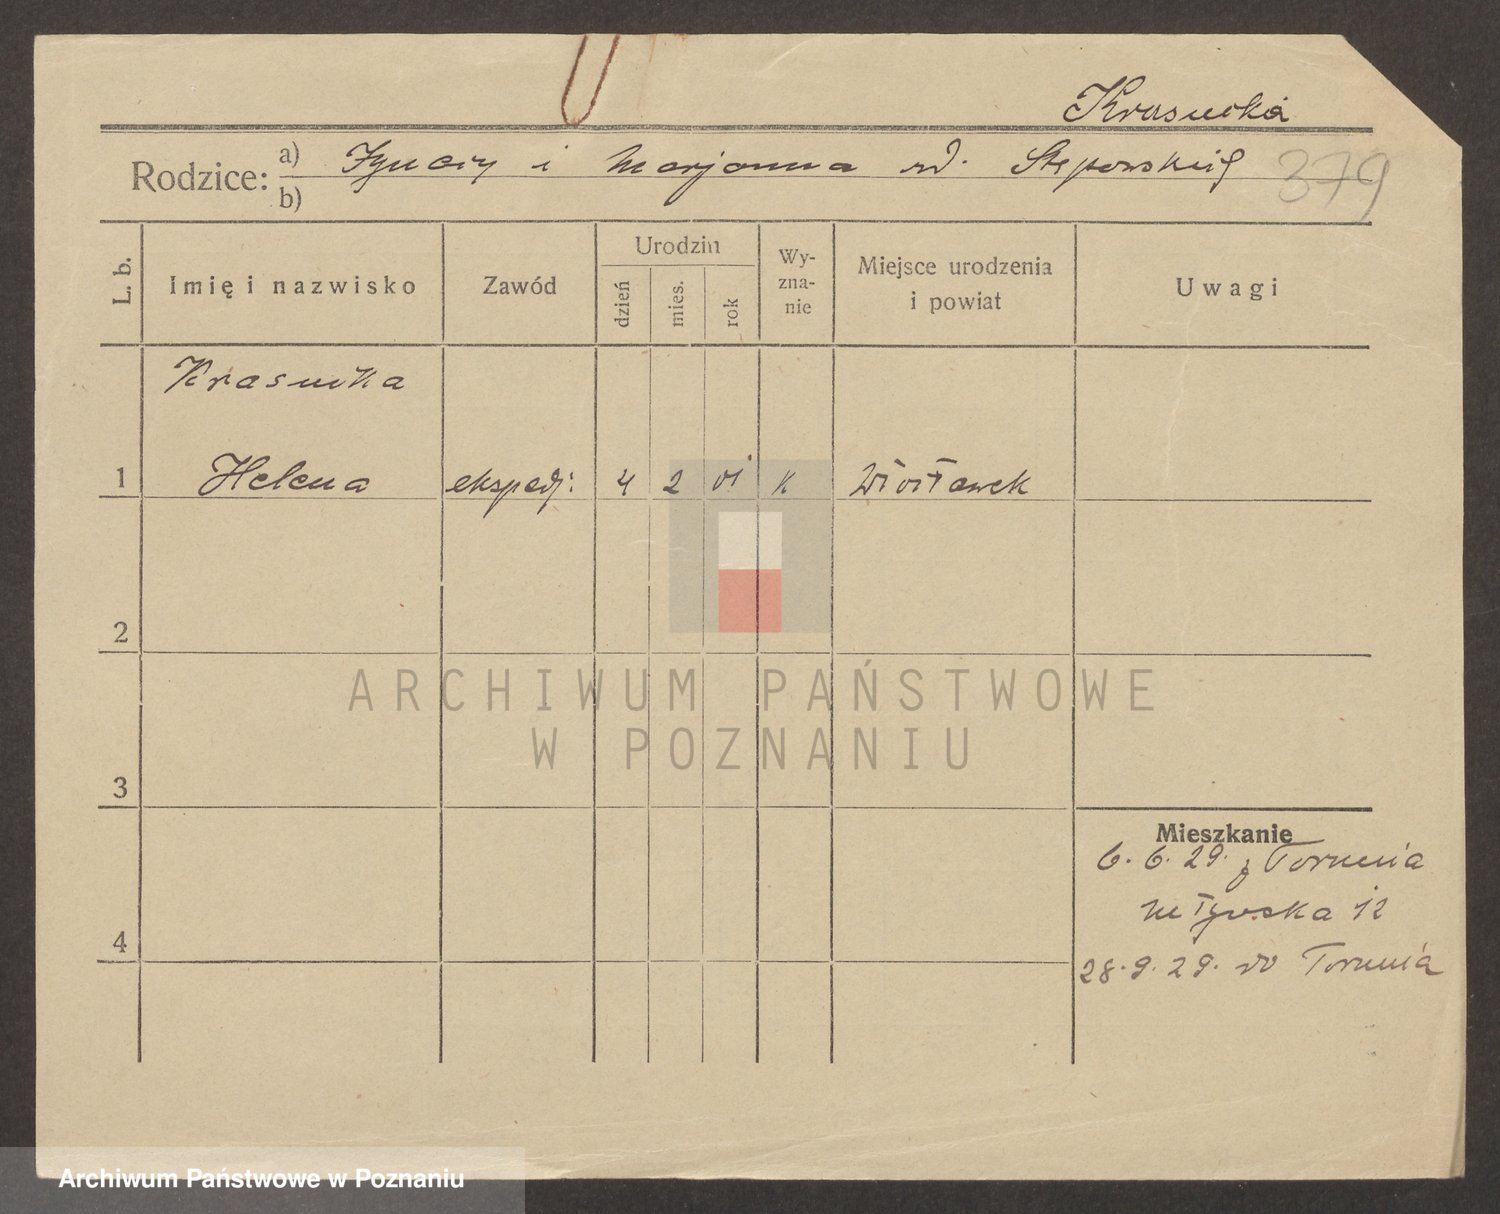 Krasucka
Rodzice: a) Ignacy i Marjanna
b)
379
L. b.
Imię i nazwisko
Zawód
Urodzin
dzień
mies.
rok
Wy-
zna-
nie
Miejsce urodzenia
i powiat
Uwagi
Krasucka
1 Helena ekspedj: 4 2 01 K
2
3
4
Mieszkanie
6. 6. 29. z Torunia
12
28. 9. 29. do Torunia
ARCHIWUM PAŃSTWOWE
W POZNANIU
Archiwum Państwowe w Poznaniu